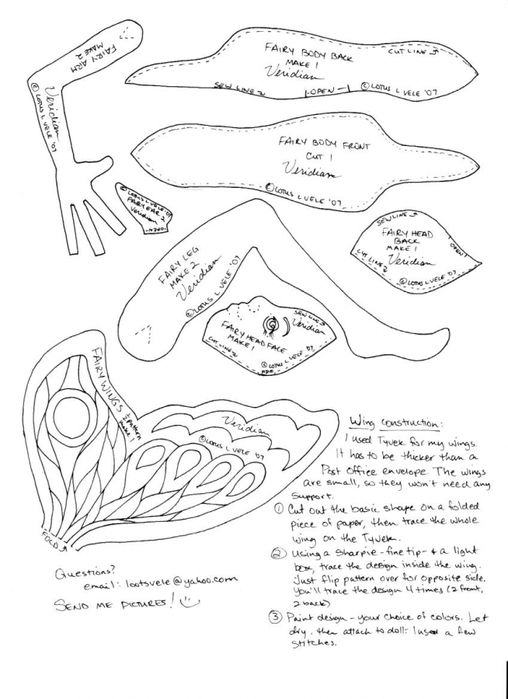 FAIRY ARM
MAKE 2
Veridian
© LOTUS L VELE '07
FAIRY BODY BACK
MAKE 1
Veridian
CUT LINE
SEW LINE
OPEN
© LOTUS L VELE '07
FAIRY BODY FRONT
CUT 1
Veridian
© LOTUS L VELE '07
© LOTUS L VELE '07
FAIRY EAR 2
Veridian
SEW LINE
FAIRY HEAD
BACK
MAKE 1
Veridian
CUT LINE
OPEN
© LOTUS L VELE '07
FAIRY LEG
MAKE 2
Veridian
© LOTUS L VELE '07
SEW LINE
Veridian
FAIRY HEAD FACE
MAKE 1
CUT LINE
© LOTUS L VELE '07
FAIRY WINGS
Veridian
© LOTUS L VELE '07
FOLD
Wing construction:
I used Tyvek for my wings
It has to be thicker than a
Post Office envelope. The wings
are small, so they won't need any
support.
① Cut out the basic shape on a folded
piece of paper, then trace the whole
wing on the Tyvek.
② Using a Sharpie - fine tip - & a light
box, trace the design inside the wing.
Just flip pattern over for opposite side.
You'll trace the design 4 times (2 front,
2 back)
③ Paint design - your choice of colors. Let
dry, then attach to doll. I used a few
stitches.
Questions?
email: lootsvele@yahoo.com
SEND ME PICTURES!